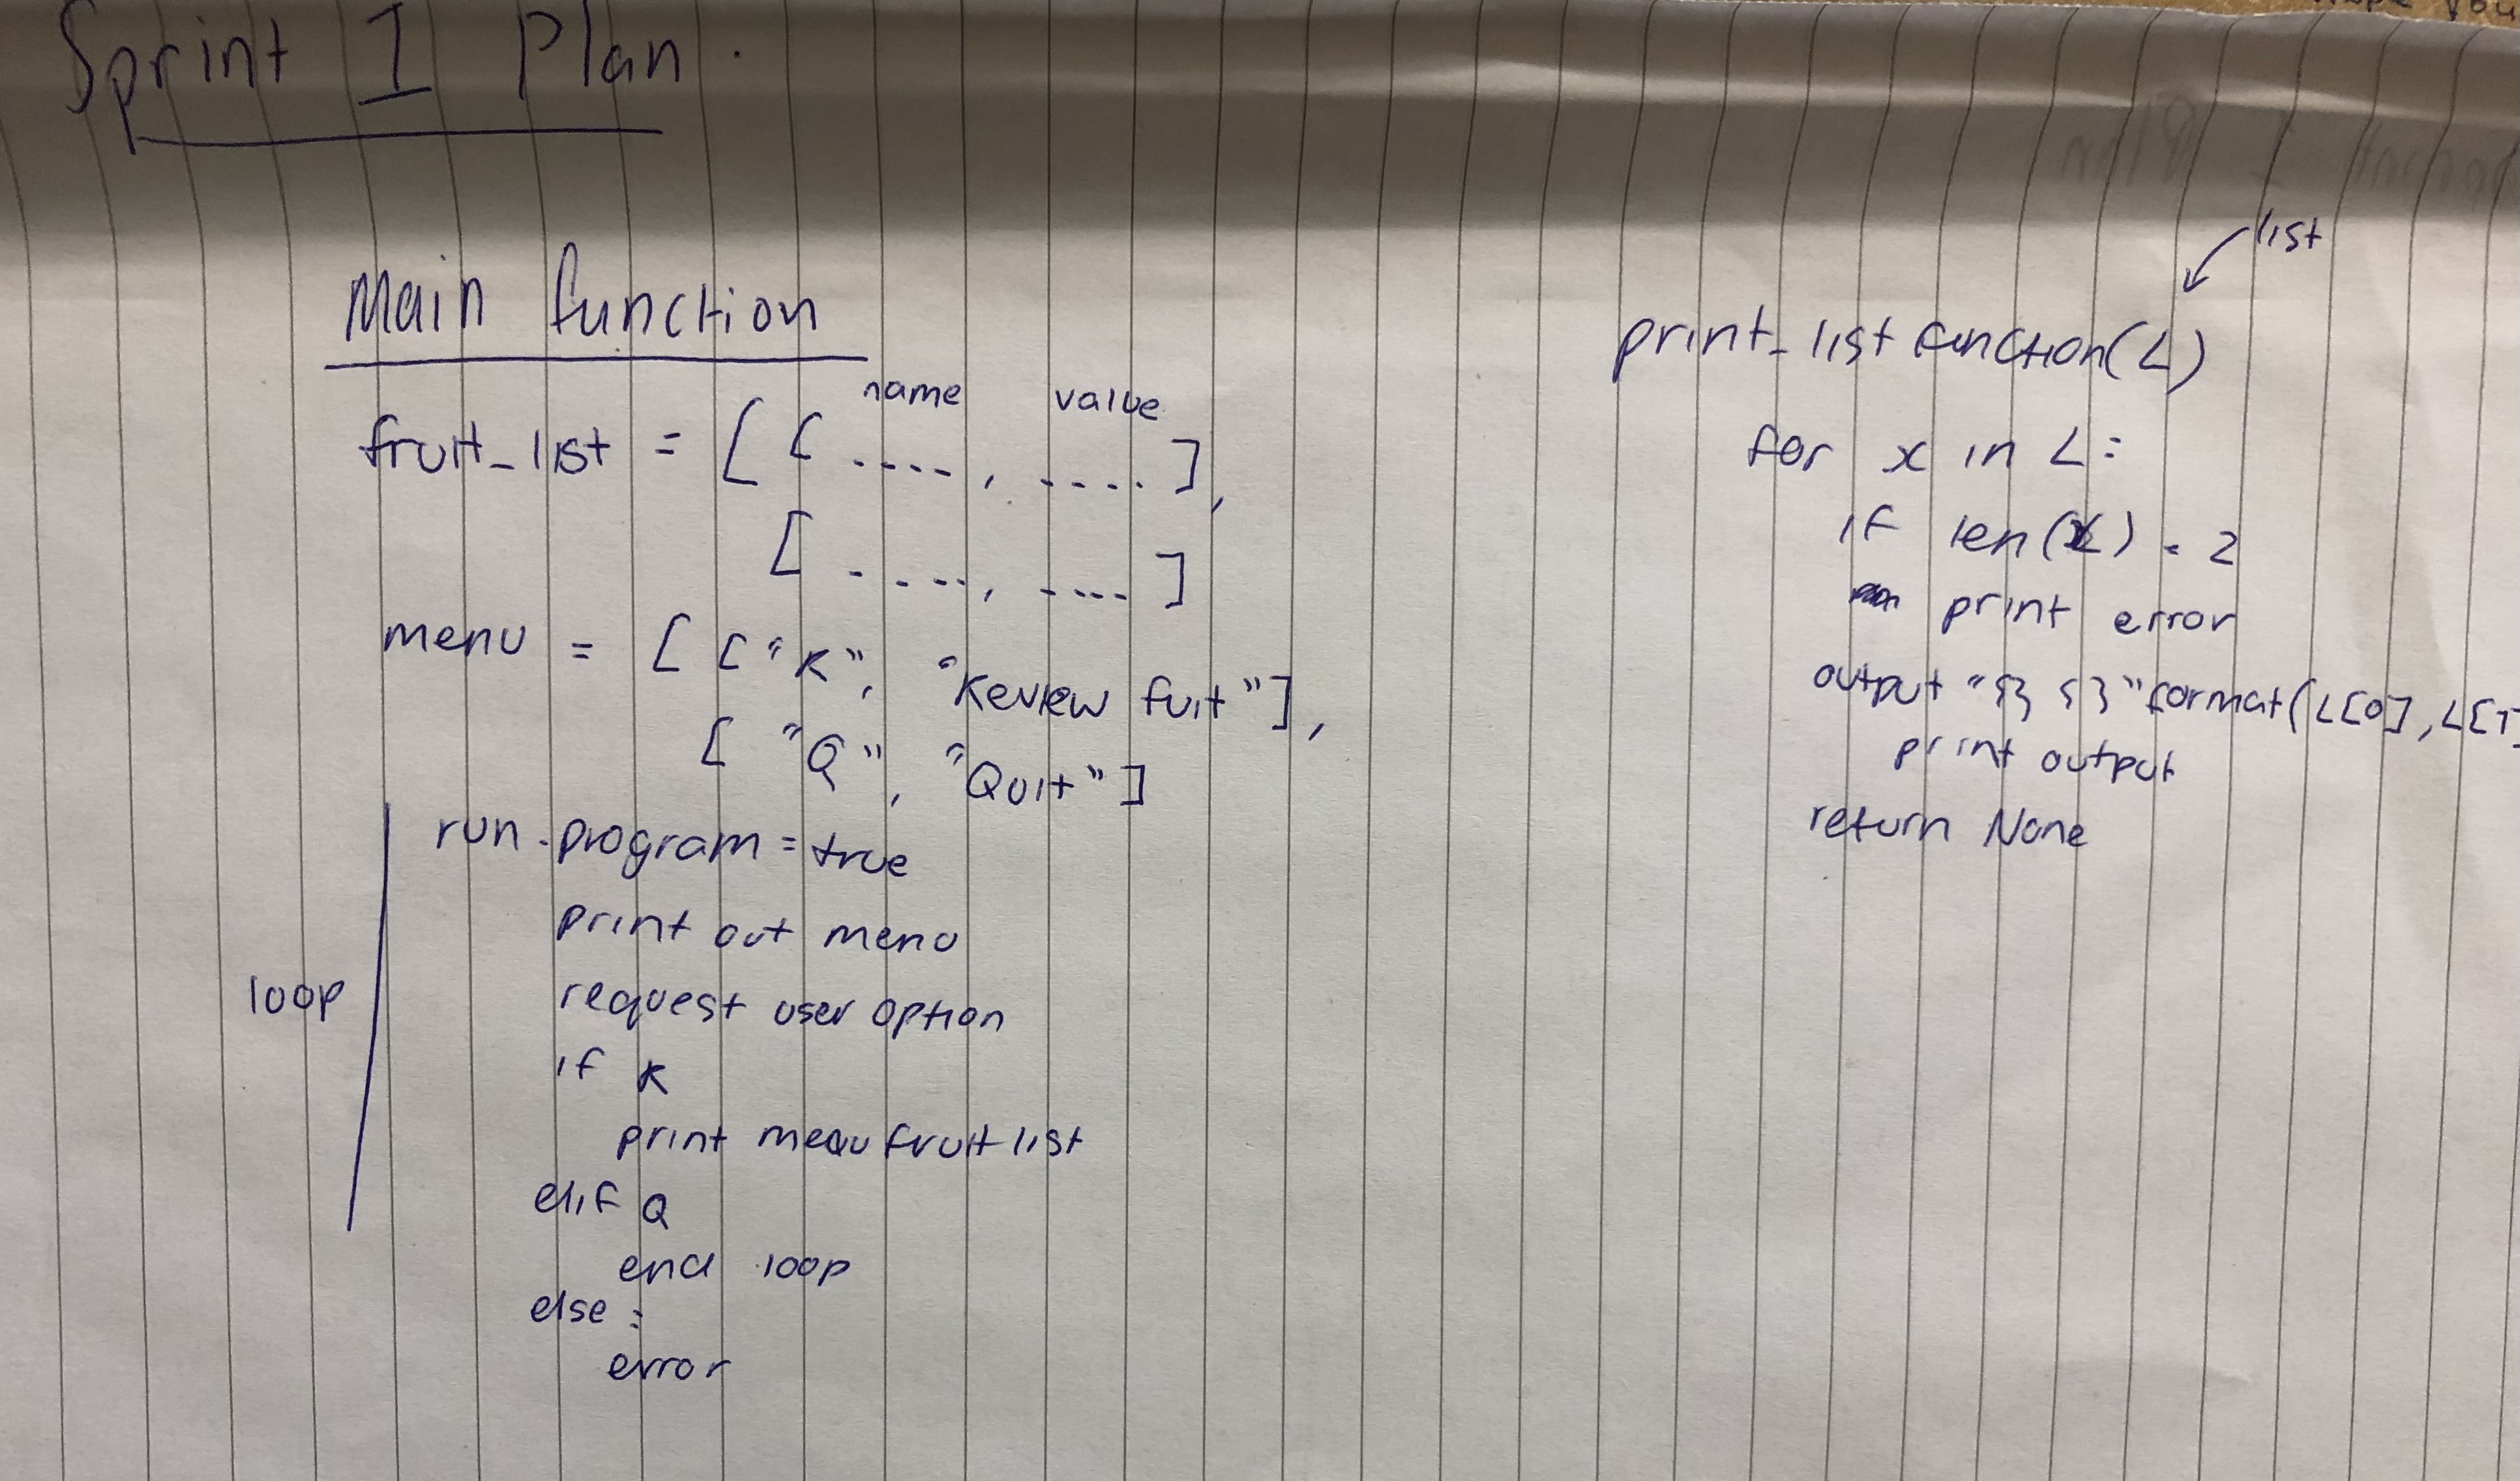 Sprint 1 Plan.
Main function
name value
fruit_list = [ [ ...., ....],
[ ...., ....]
menu = [ ["R", "Review fuit"],
[ "Q", "Quit"]
loop
run_program = true
print out menu
request user option
if R
print menu fruit list
elif Q
end loop
else :
error
list
print_list function(L)
for x in L:
if len(x) = 2
print error
output "{} {}" format(L[0], L[1]
print output
return None